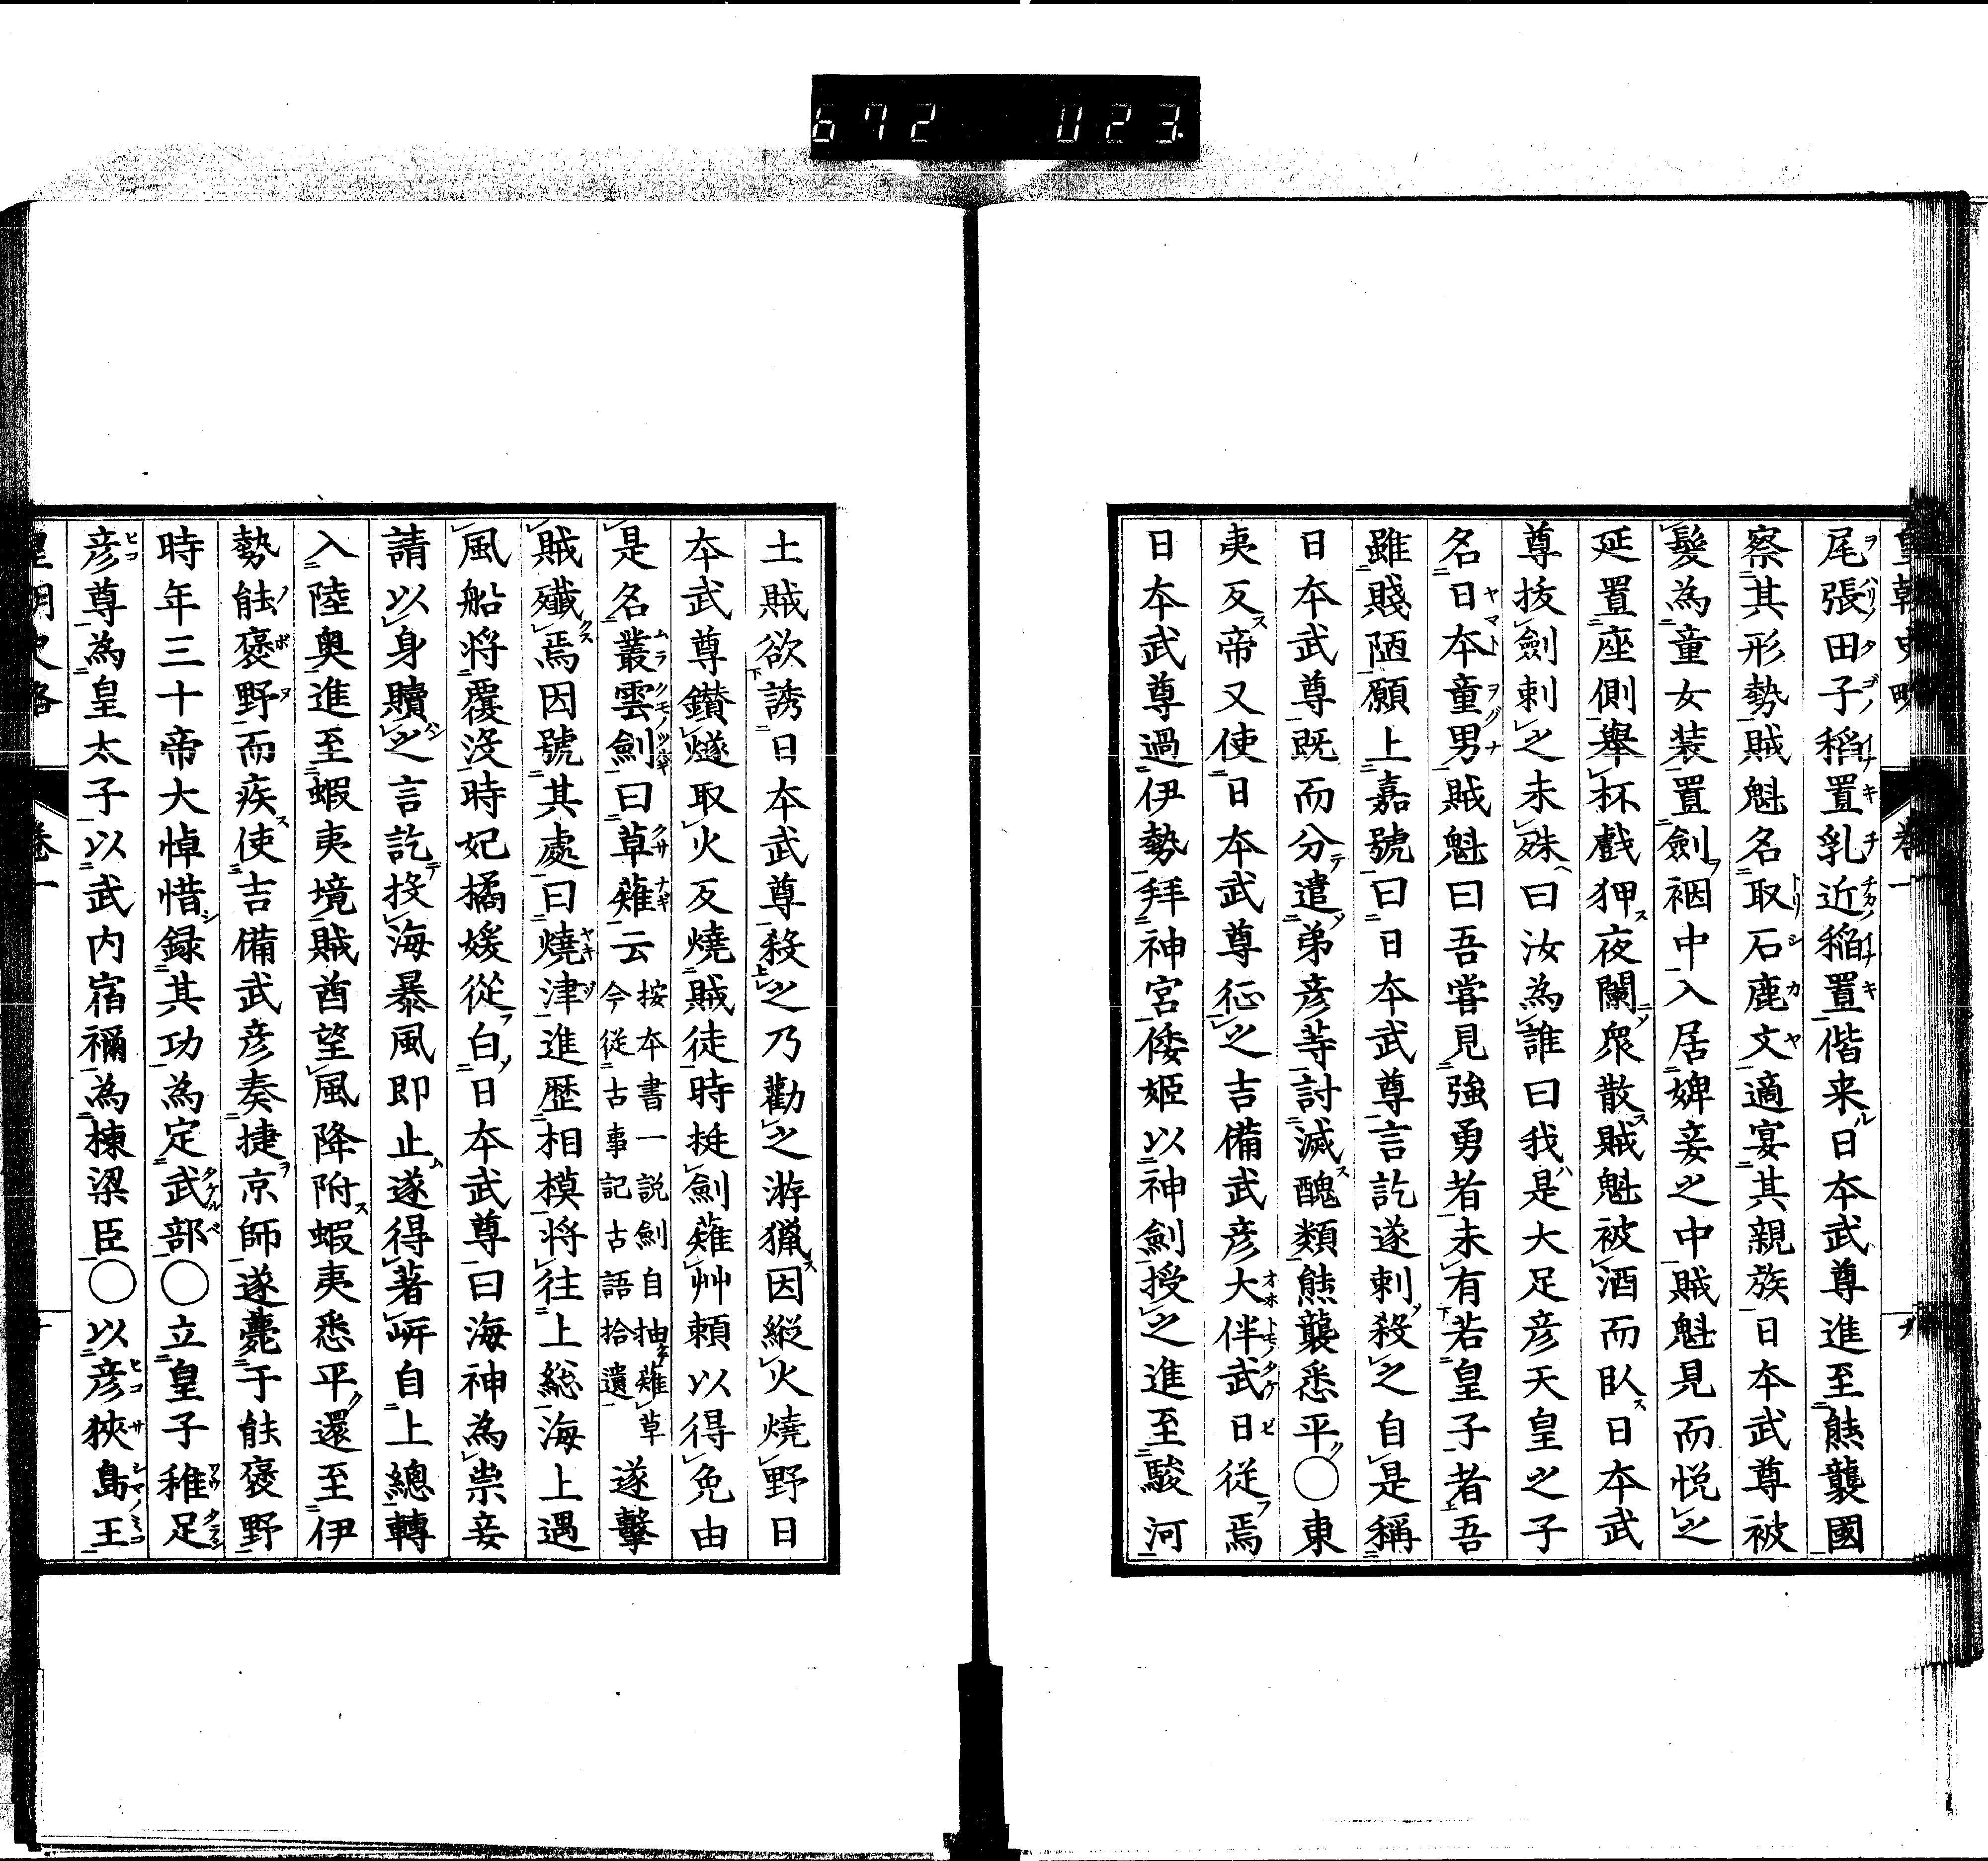 672 023
皇朝史略 卷一
尾張田子稻置乳近稻置偕来日本武尊進至熊襲國
察其形勢賊魁名取石鹿文適宴其親族日本武尊被
髮為童女装置劍裀中入居婢妾之中賊魁見而悦之
延置座側舉杯戲狎夜闌衆散賊魁被酒而臥日本武
尊拔劍刺之未殊曰汝為誰曰我是大足彦天皇之子
名日本童男賊魁曰吾嘗見強勇者未有若皇子者吾
雖賤陋願上嘉號曰日本武尊言訖遂刺殺之自是稱
日本武尊既而分遣弟彦等討滅醜類熊襲悉平○東
夷反帝又使日本武尊征之吉備武彦大伴武日從焉
日本武尊過伊勢拜神宮倭姬以神劍授之進至駿河
土賊欲誘日本武尊殺之乃勸之游獵因縱火燒野日
本武尊鑚燧取火反燒賊徒時挺劍薙艸頼以得免由
是名叢雲劍曰草薙云按本書一説劍自抽薙草今從古事記古語拾遺遂擊
賊殲焉因號其處曰燒津進歴相模将往上総海上遇
風船将覆没時妃橘媛從白日本武尊曰海神為祟妾
請以身贖之言訖投海暴風即止遂得著岍自上總轉
入陸奥進至蝦夷境賊酋望風降附蝦夷悉平還至伊
勢能褒野而疾使吉備武彦奏捷京師遂薨于能褒野
時年三十帝大悼惜録其功為定武部○立皇子稚足
彦尊為皇太子以武内宿禰為棟梁臣○以彦狹島王
皇朝史略 卷一